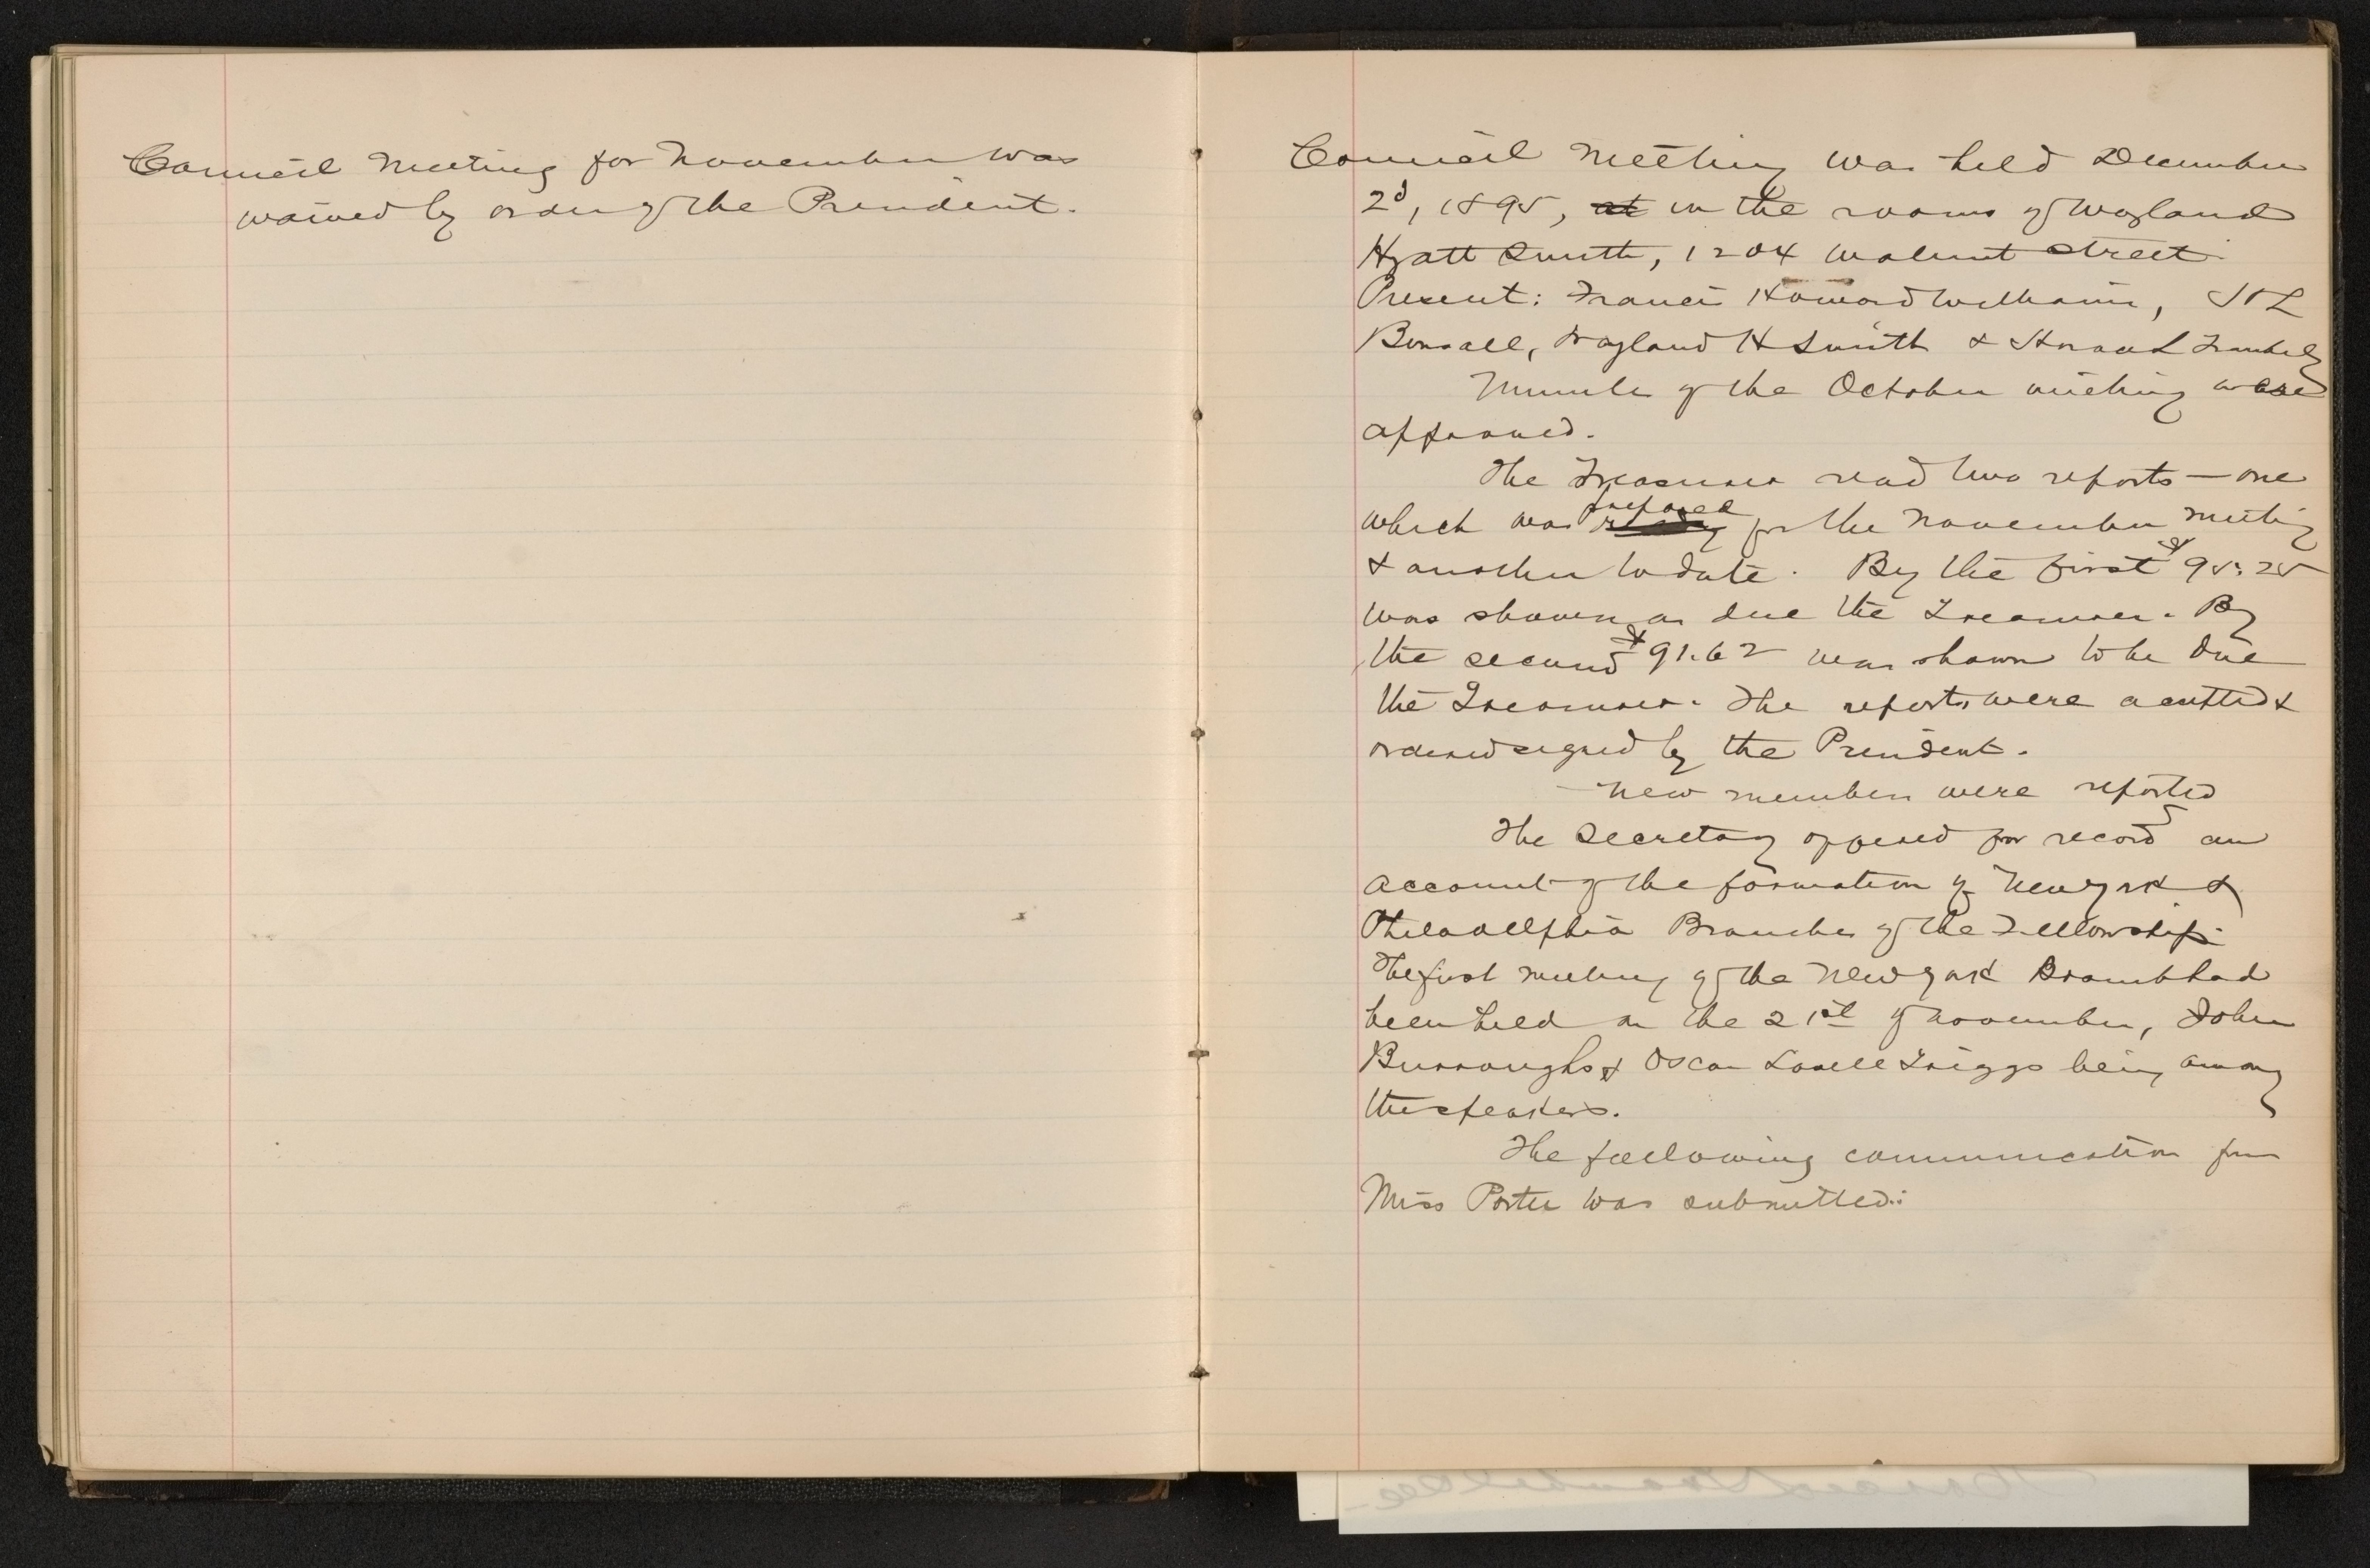 Council Meeting for November was
waived by order of the President.
Council Meeting was held December
2d, 1895, at in the rooms of Wayland
Hyatt Smith, 1204 Walnut Street
Present: Francis Howard Williams, H L
Bonsall, Wayland H Smith & Horace L Traubel
Minutes of the October meeting were
approved.
The Treasurer read two reports — one
prepared
which was ready for the November meeting
& another to date. By the first $95.25
was shown as due the Treasurer. By
the second $91.62 was shown to be due
the Treasurer. The reports were accepted &
ordered signed by the President.
— New members were reported
The Secretary offered for record an
account of the formation of New York &
Philadelphia Branches of the Fellowship.
The first meeting of the New York Branch had
been held on the 21st of November, John
Burroughs & Oscar Lovell Triggs being among
the speakers.
The following communication from
Miss Porter was submitted: